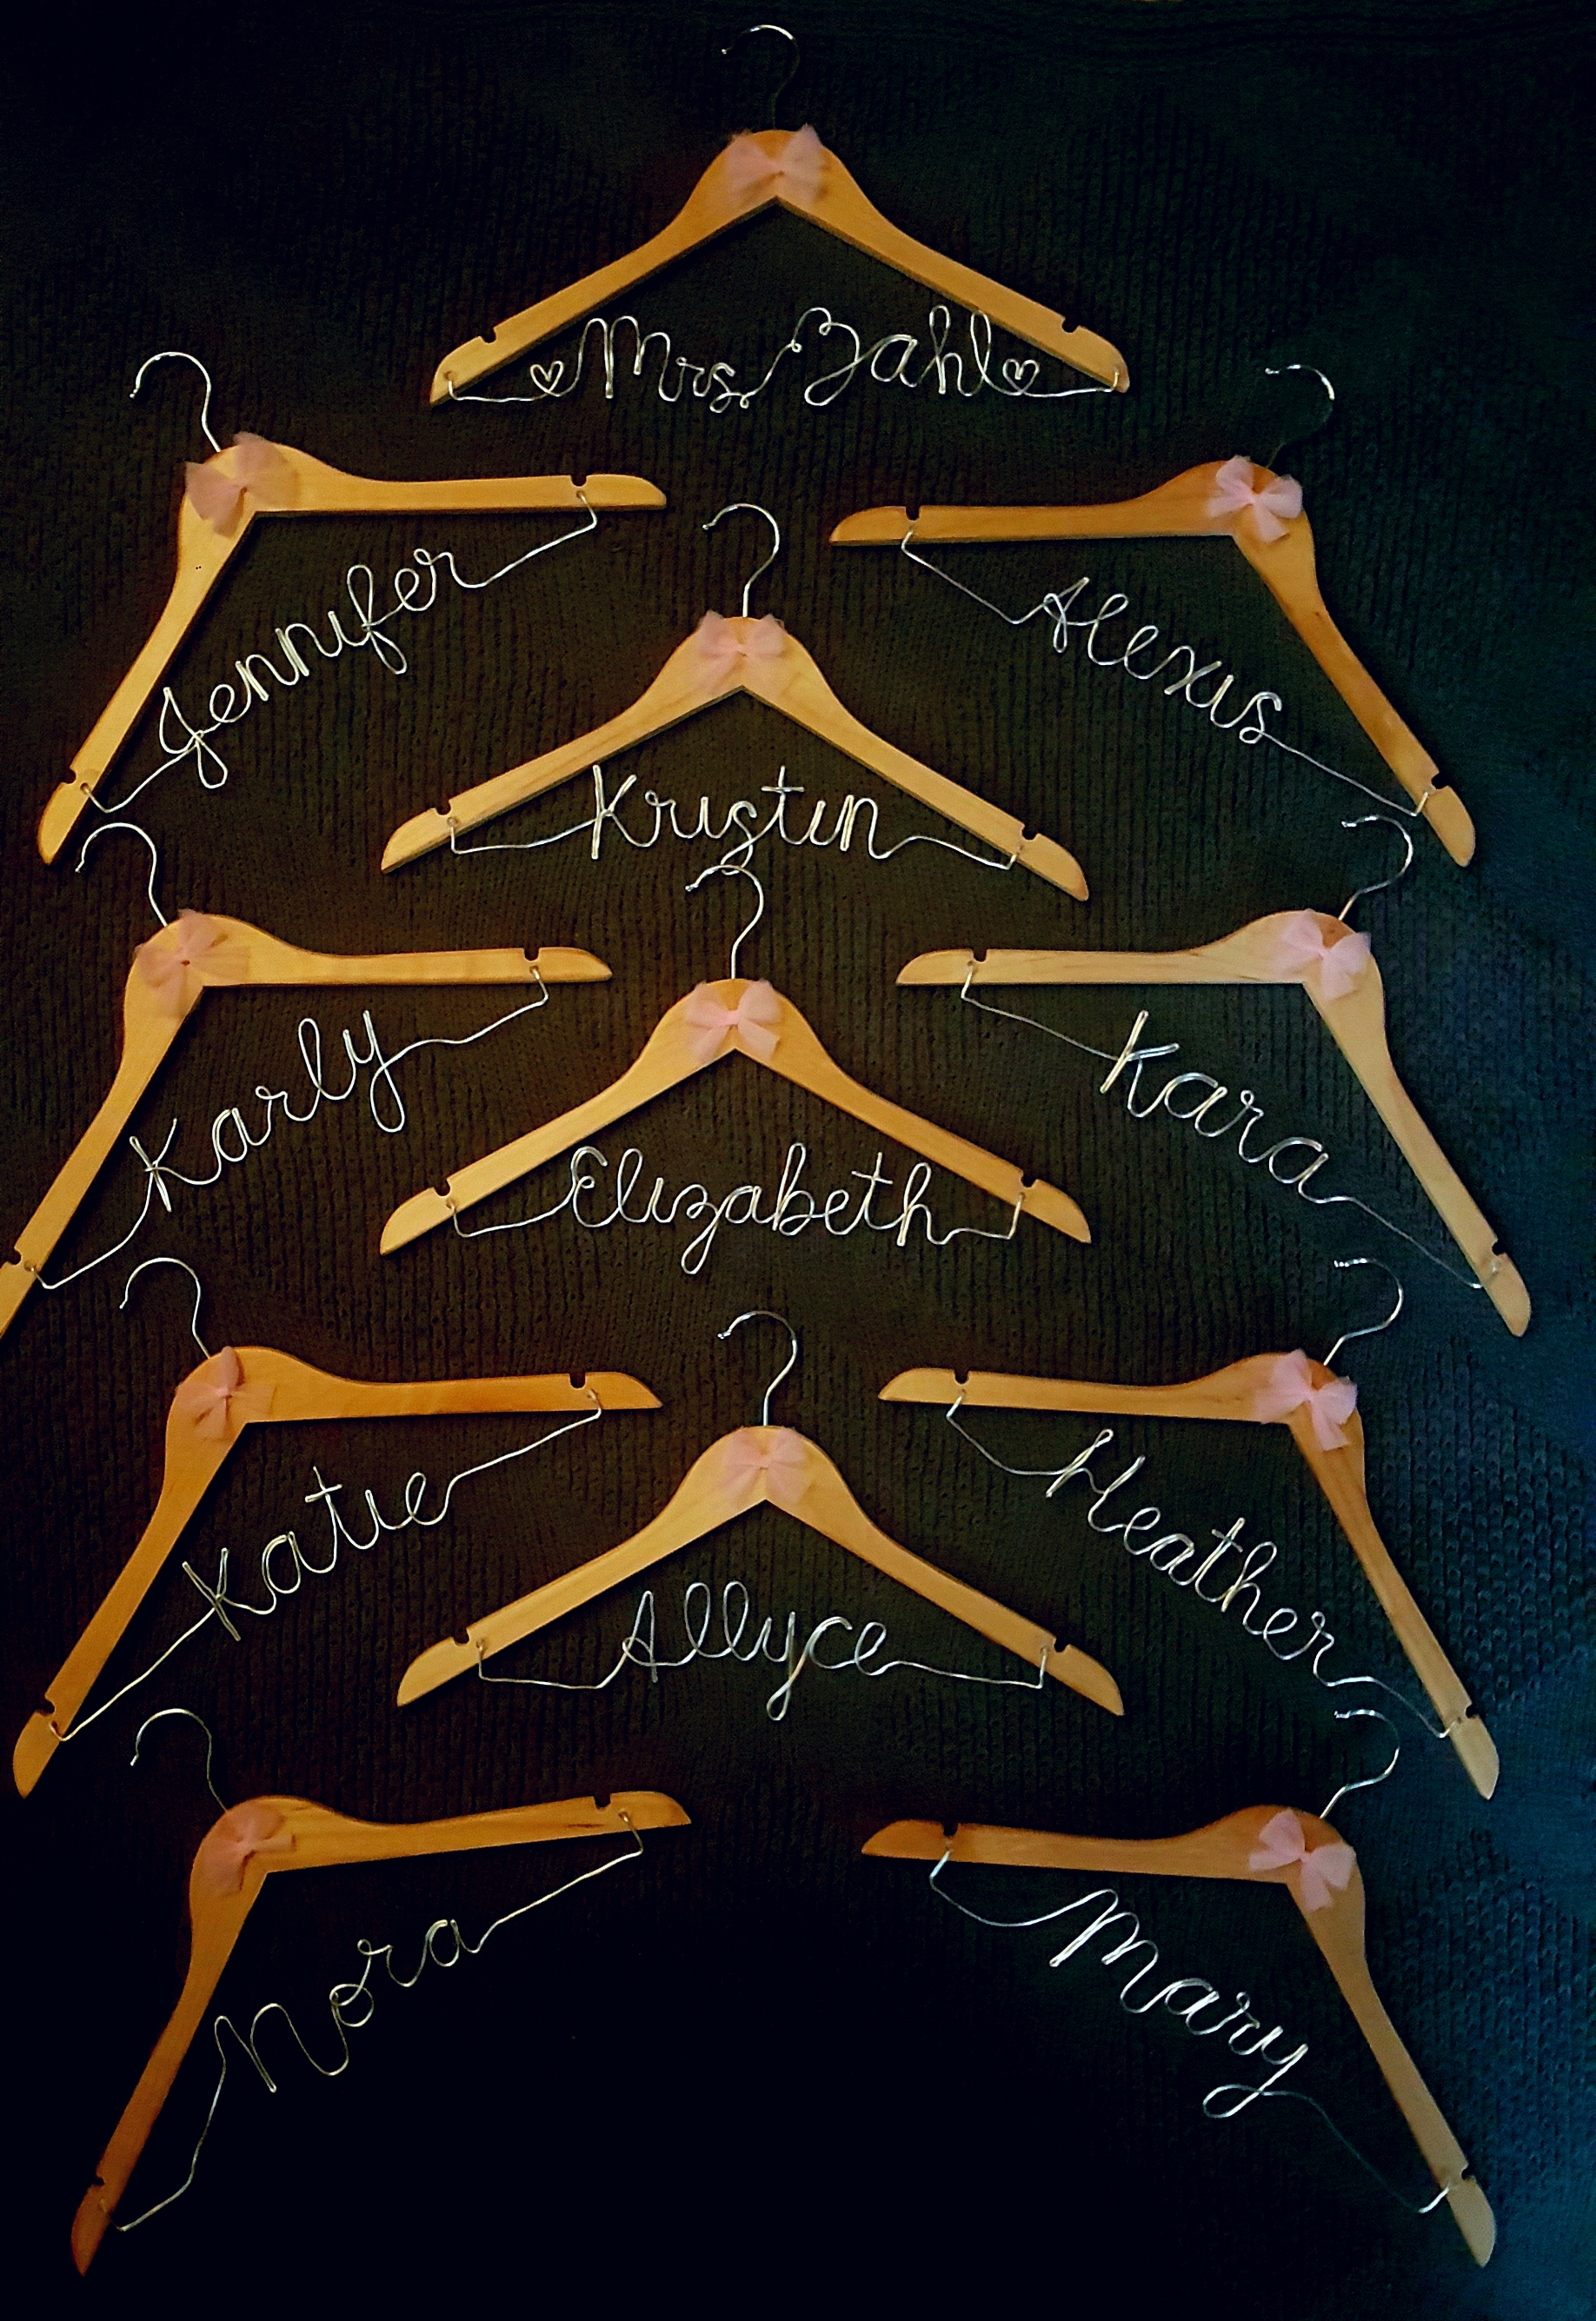 Mrs. Zahl
Jennifer
Alexis
Kristin
Karly
Kara
Elizabeth
Katie
Heather
Allyce
Nora
Mary